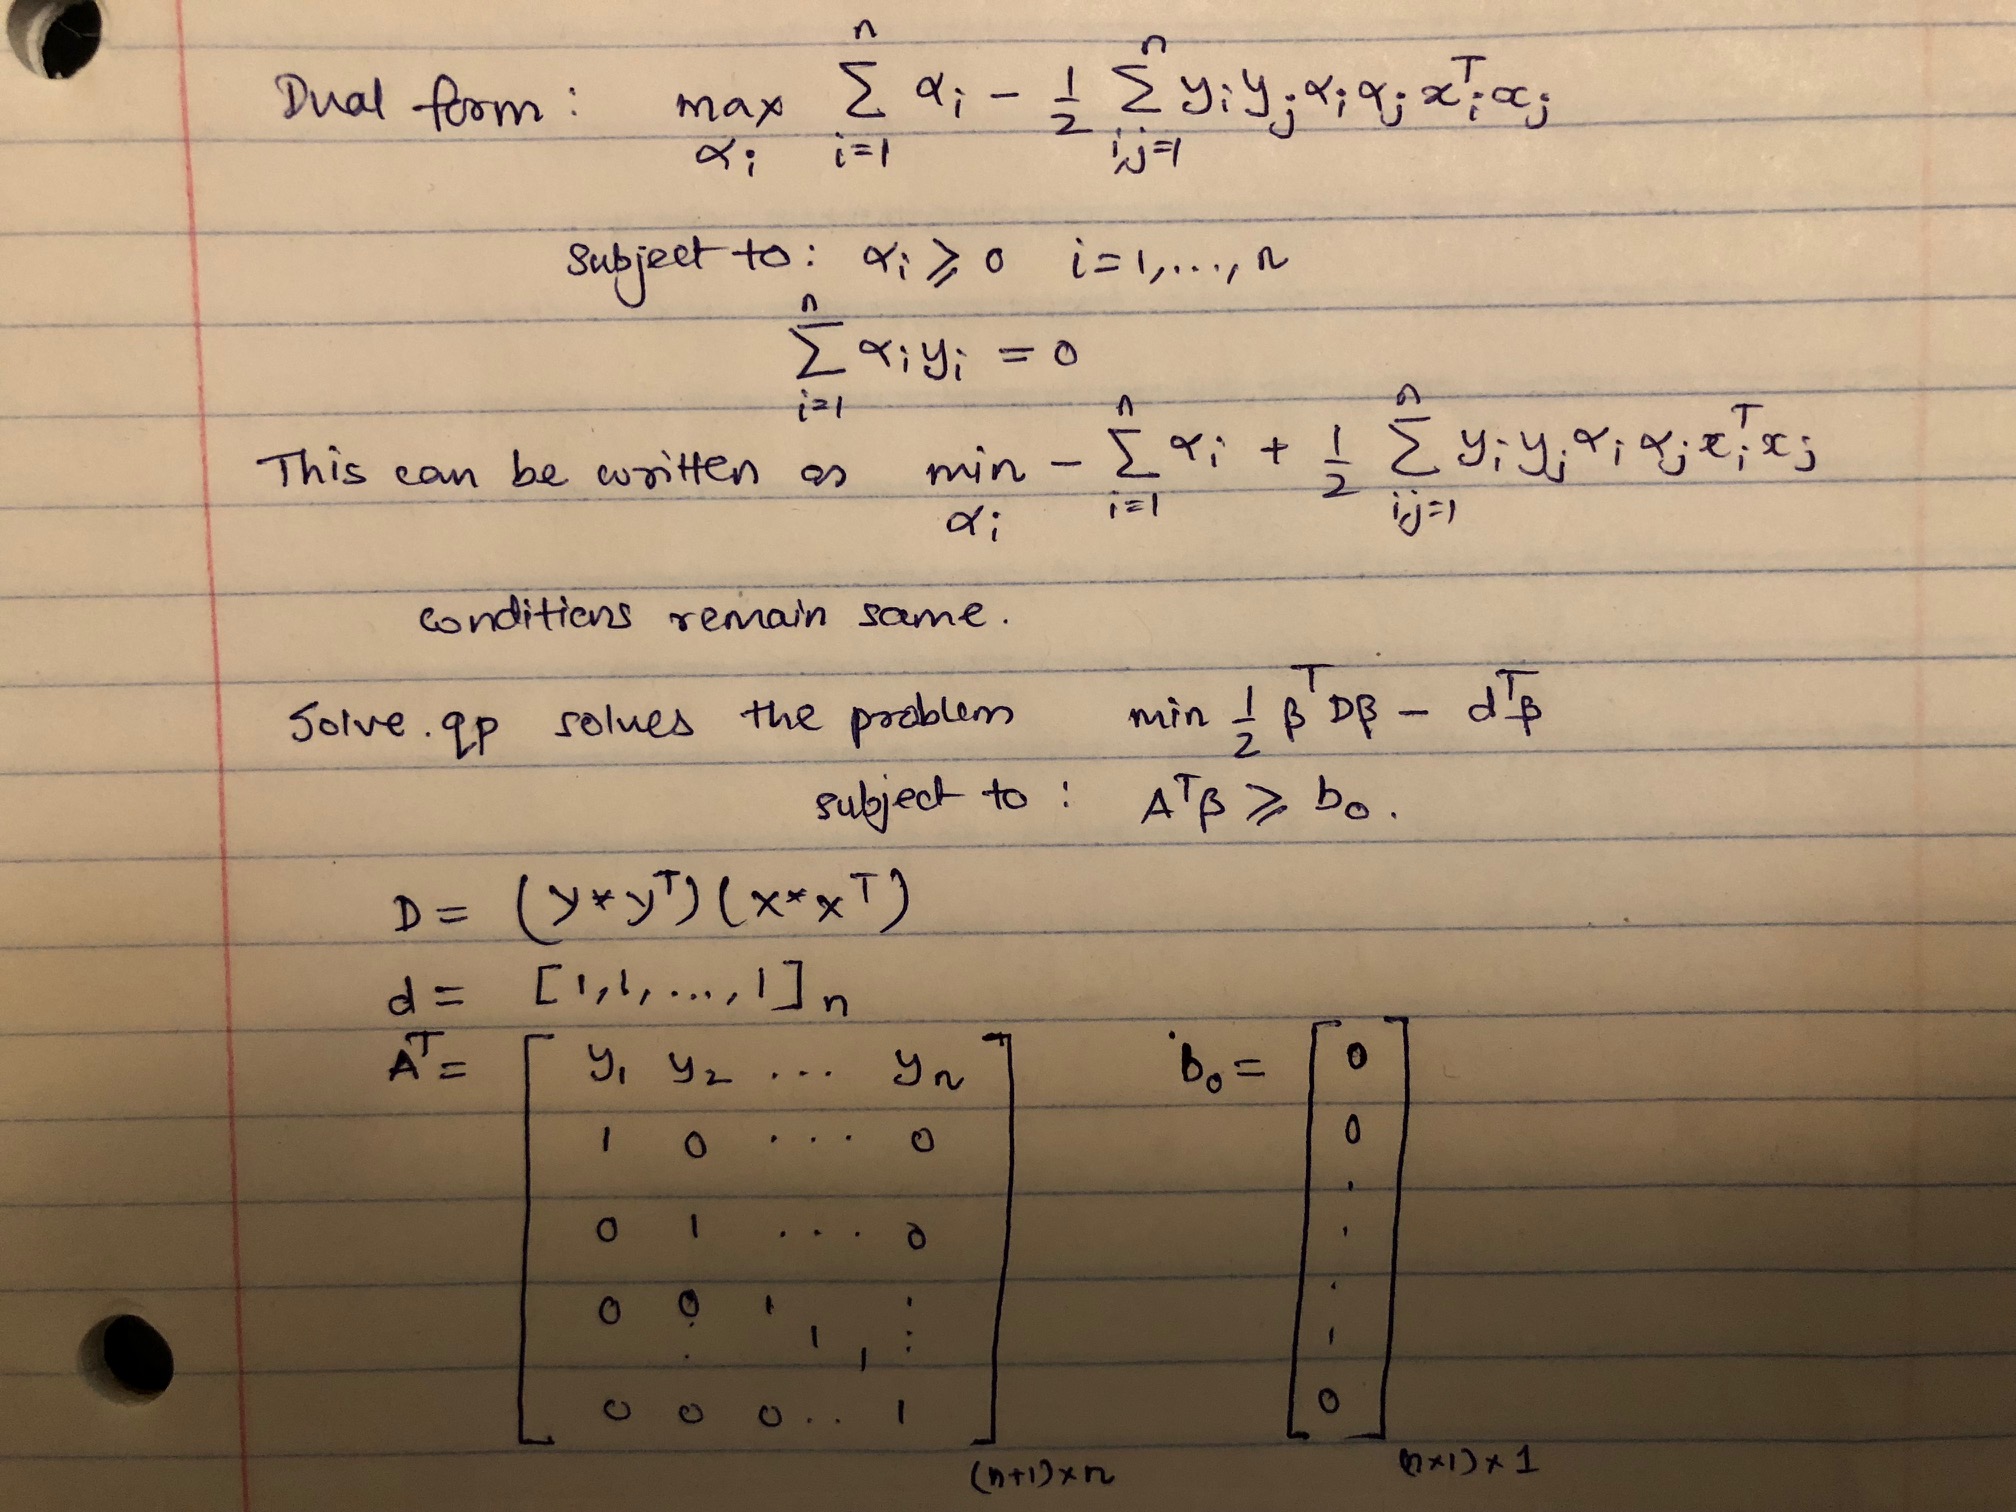 Dual form : max_{αi} Σ_{i=1}^{n} αi − 1/2 Σ_{i,j=1}^{n} yi yj αi αj xi^T xj
subject to : αi ⩾ 0 i=1,...,n
Σ_{i=1}^{n} αi yi = 0
This can be written as min_{αi} − Σ_{i=1}^{n} αi + 1/2 Σ_{i,j=1}^{n} yi yj αi αj xi^T xj
conditions remain same.
Solve.qp solves the problem min 1/2 β^T Dβ − d^T β
subject to : A^T β ⩾ b0.
D = (y*y^T)(x*x^T)
d = [1,1,...,1]n
A^T = [ y1 y2 ... yn b0 = [ 0
1 0 ... 0 0
0 1 ... 0 .
0 0 1 : .
. 1 1 : 1
0 0 0 .. 1 ] 0 ]
(n+1)×n (n×1)×1